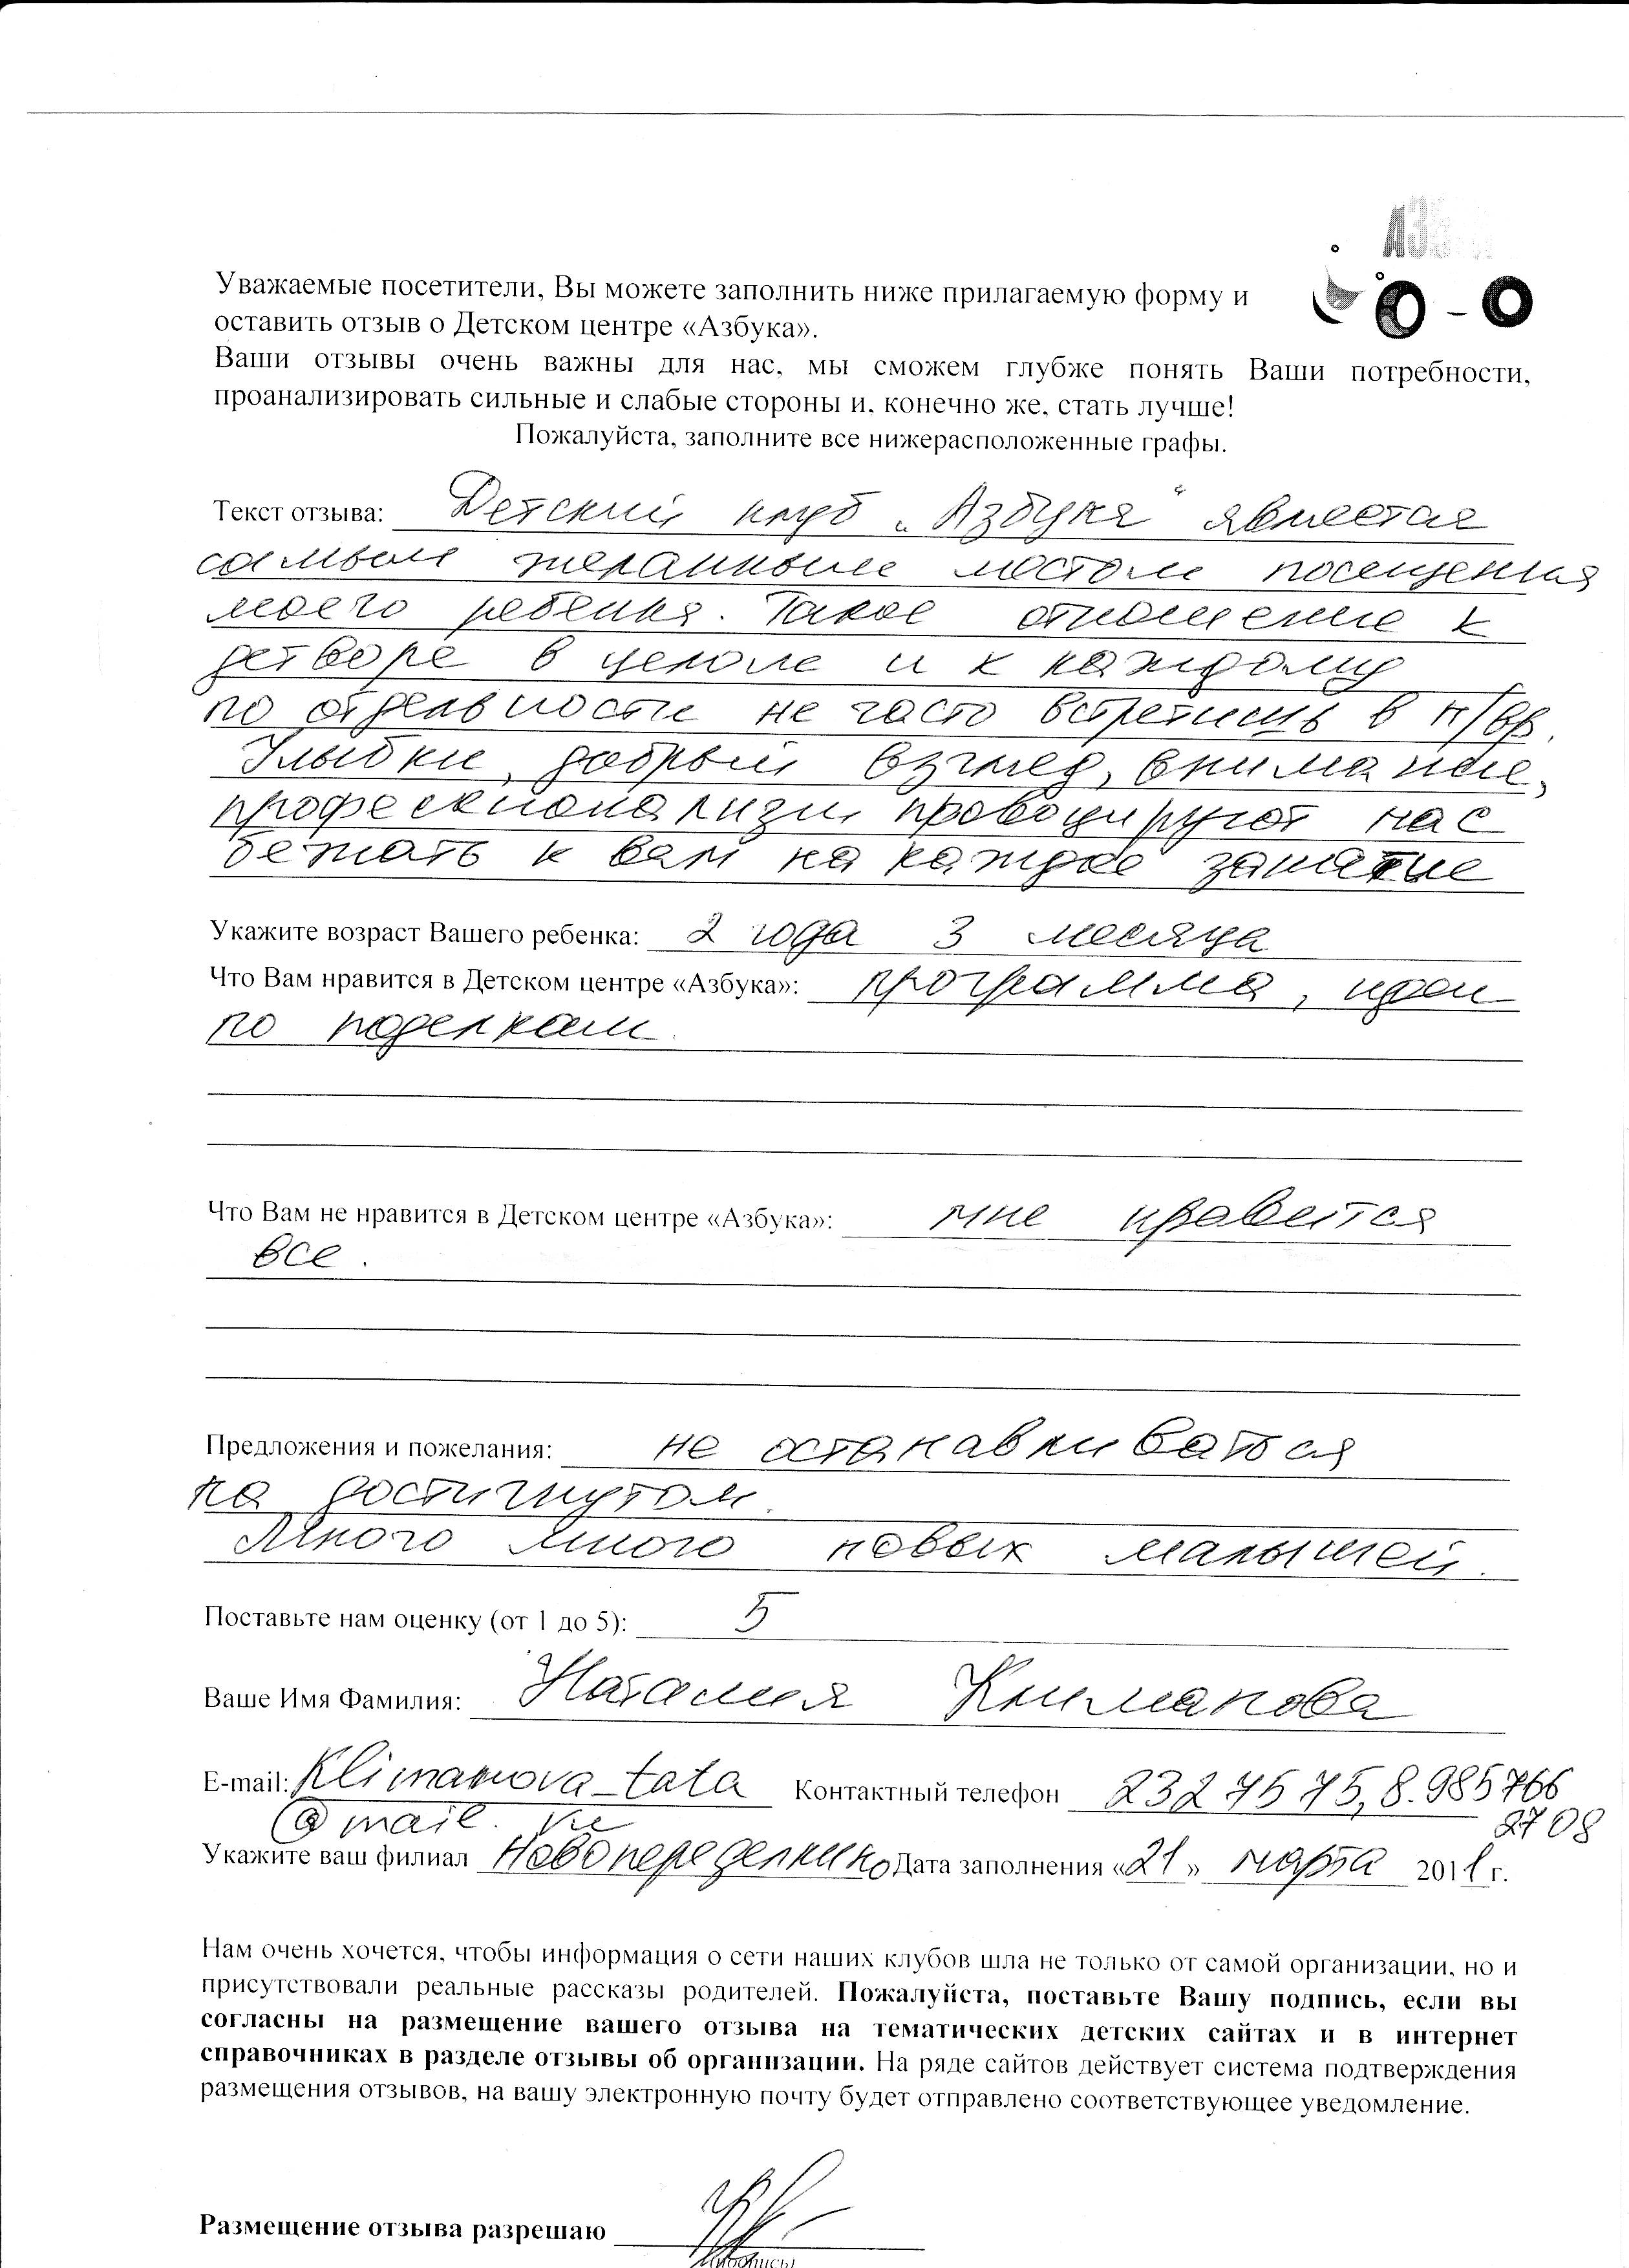 Уважаемые посетители, Вы можете заполнить ниже прилагаемую форму и
оставить отзыв о Детском центре «Азбука».
Ваши отзывы очень важны для нас, мы сможем глубже понять Ваши потребности,
проанализировать сильные и слабые стороны и, конечно же, стать лучше!
Пожалуйста, заполните все нижерасположенные графы.
Текст отзыва: Детский клуб „Азбука“ является
самым желанным местом посещения
моего ребенка. Такое отношение к
детворе в целом и к каждому
по отдельности не часто встретишь в н/вр.
Улыбки, добрый взгляд, внимание,
профессионализм провоцируют нас
бежать к вам на каждое занятие
Укажите возраст Вашего ребенка: 2 года 3 месяца
Что Вам нравится в Детском центре «Азбука»: программа, идеи
по поделкам.
Что Вам не нравится в Детском центре «Азбука»: мне нравится
все.
Предложения и пожелания: не останавливаться
на достигнутом.
Много много новых малышей.
Поставьте нам оценку (от 1 до 5): 5
Ваше Имя Фамилия: Наталия Климанова
E-mail: Klimanova_tata Контактный телефон 232 75 75, 8.985 766
@mail.ru 27 08
Укажите ваш филиал Новопеределкино Дата заполнения «21» марта 2011 г.
Нам очень хочется, чтобы информация о сети наших клубов шла не только от самой организации, но и
присутствовали реальные рассказы родителей. Пожалуйста, поставьте Вашу подпись, если вы
согласны на размещение вашего отзыва на тематических детских сайтах и в интернет
справочниках в разделе отзывы об организации. На ряде сайтов действует система подтверждения
размещения отзывов, на вашу электронную почту будет отправлено соответствующее уведомление.
Размещение отзыва разрешаю
(подпись)